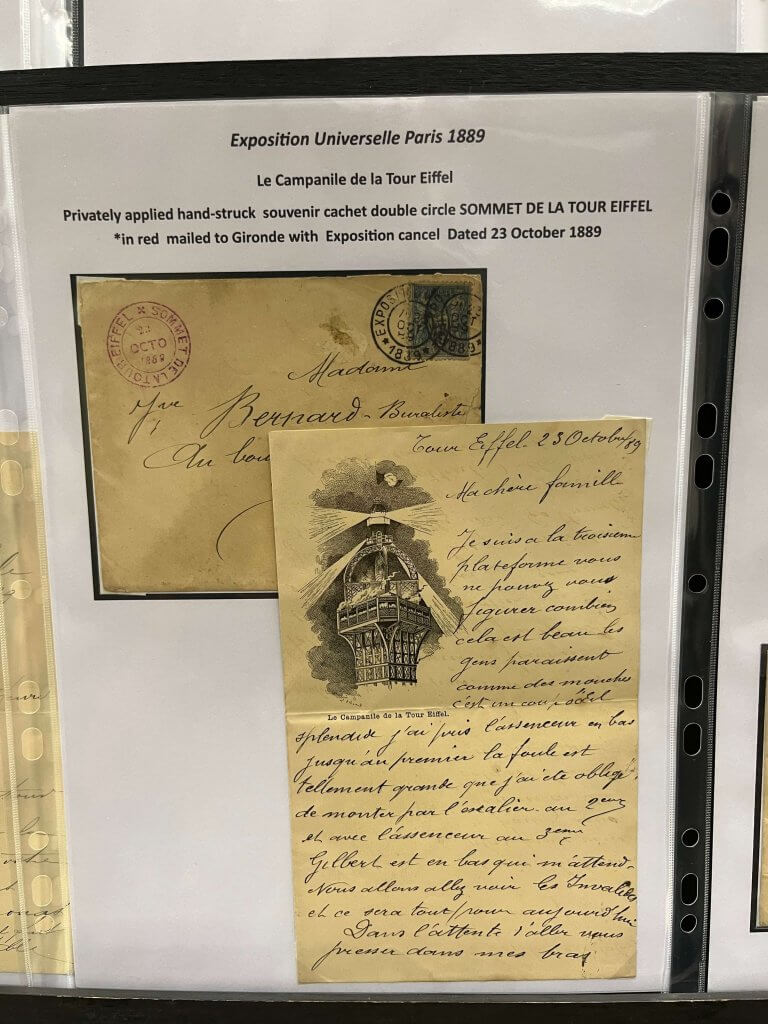 Exposition Universelle Paris 1889
Le Campanile de la Tour Eiffel
Privately applied hand-struck souvenir cachet double circle SOMMET DE LA TOUR EIFFEL
*in red mailed to Gironde with Exposition cancel Dated 23 October 1889
SOMMET DE LA TOUR EIFFEL
23
OCTO
1889
EXPOSITION
1889
Madame
Vve Bernard - Buraliste
Au bou
Tour Eiffel 23 Octobre 89
Ma chère famille
Je suis a la troisieme
plateforme vous
ne pouvez vous
figurer combien
cela est beau les
gens paraissent
comme des mouches
c'est un coup d'œil
Le Campanile de la Tour Eiffel.
splendide j'ai pris l'assenceur en bas
jusqu'au premier la foule est
tellement grande que j'ai été obligé
de monter par l'escalier au 2eme
et avec l'assenceur au 3eme
Gilbert est en bas qui m'attend.
Nous allons allez voir les Invalides
et ce sera tout pour aujourd'hui
Dans l'attente d'aller vous
presser dans mes bras